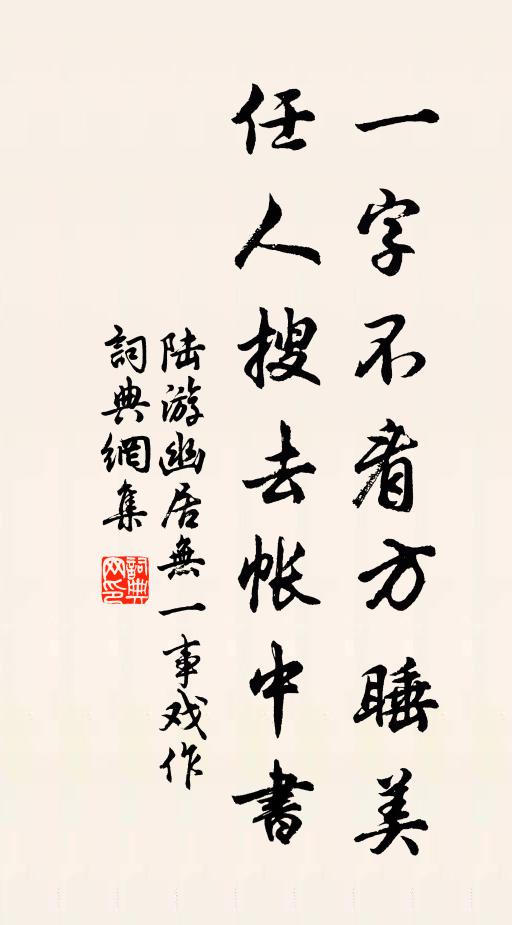 一字不看方睡美
任人搜去帐中書
陆游幽居無一事戏作
詞典網集
詞典网印